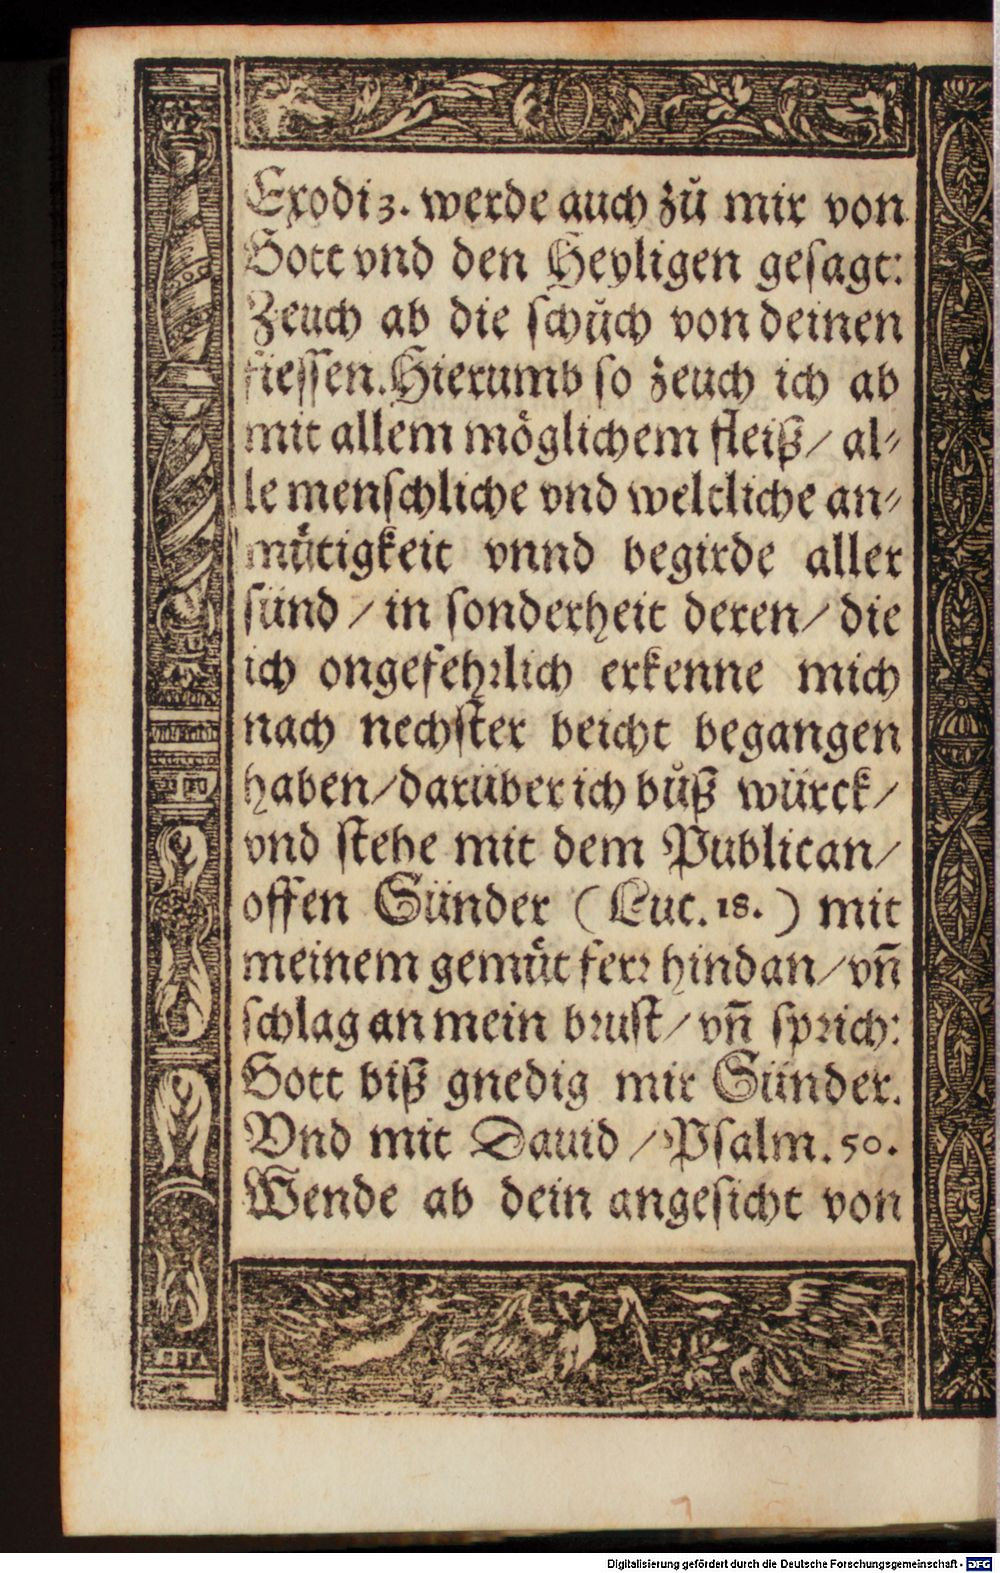 Exodi 3. werde auch zů mir von
Gott vnd den Heyligen gesagt:
Zeuch ab die schůch von deinen
fiessen. Hierumb so zeuch ich ab
mit allem möglichem fleiß / al⸗
le menschliche vnd weltliche an⸗
mütigkeit vnnd begirde aller
sünd / in sonderheit deren / die
ich ongefehrlich erkenne mich
nach nechster beicht begangen
haben / darüber ich bůß würck /
vnd stehe mit dem Publican /
offen Sünder ( Luc. 18. ) mit
meinem gemüt ferr hindan / vñ
schlag an mein brust / vñ sprich:
Gott biß gnedig mir Sünder.
Vnd mit Dauid / Psalm. 50.
Wende ab dein angesicht von
Digitalisierung gefördert durch die Deutsche Forschungsgemeinschaft - DFG